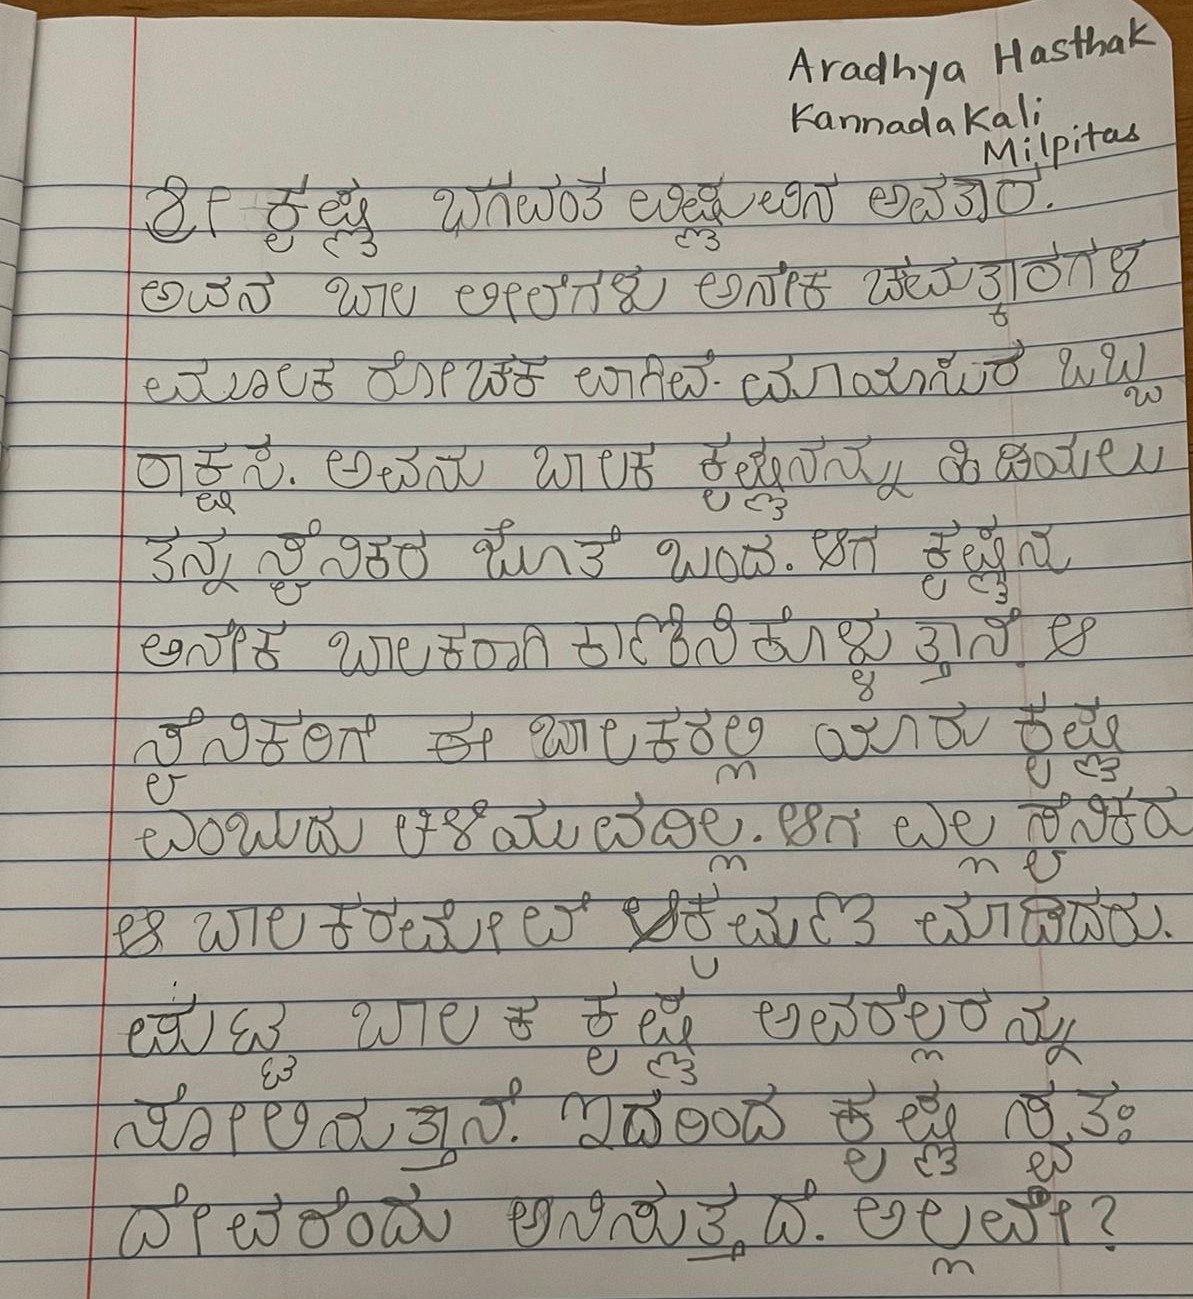 Aradhya Hasthak
Kannada Kali
Milpitas
ಶ್ರೀ ಕೃಷ್ಣ ಬಗವಂತ ವಿಷ್ಣುವಿನ ಅವತಾರ.
ಅವನ ಬಾಲ ಲೀಲೆಗಳು ಅನೇಕ ಚಮತ್ಕಾರಗಳ
ಮೂಲಕ ರೋಚಕ ವಾಗಿವೆ. ಮಾಯಾಸುರ ಒಬ್ಬ
ರಾಕ್ಷಸ. ಅವನು ಬಾಲಕ ಕೃಷ್ಣನನ್ನು ಹಿಡಿಯಲು
ತನ್ನ ಸೈನಿಕರ ಜೊತೆ ಬಂದ. ಆಗ ಕೃಷ್ಣನು
ಅನೇಕ ಬಾಲಕರಾಗಿ ಕಾಣಿಸಿಕೊಳ್ಳುತ್ತಾನೆ. ಆ
ಸೈನಿಕರಿಗೆ ಈ ಬಾಲಕರಲ್ಲಿ ಯಾರು ಕೃಷ್ಣ
ವೆಂಬುದು ತಿಳಿಯುವದಿಲ್ಲ. ಆಗ ಎಲ್ಲ ಸೈನಿಕರು
ಆ ಬಾಲಕರಮೇಲೆ ಆಕ್ರಮಣ ಮಾಡಿದರು.
ಪುಟ್ಟ ಬಾಲಕ ಕೃಷ್ಣ ಅವರೆಲ್ಲರನ್ನು
ಸೋಲಿಸುತ್ತಾನೆ. ಇದರಿಂದ ಕೃಷ್ಣ ಸ್ವತಃ
ದೇವರೆಂದು ಅನಿಸುತ್ತದೆ. ಅಲ್ಲವೇ?